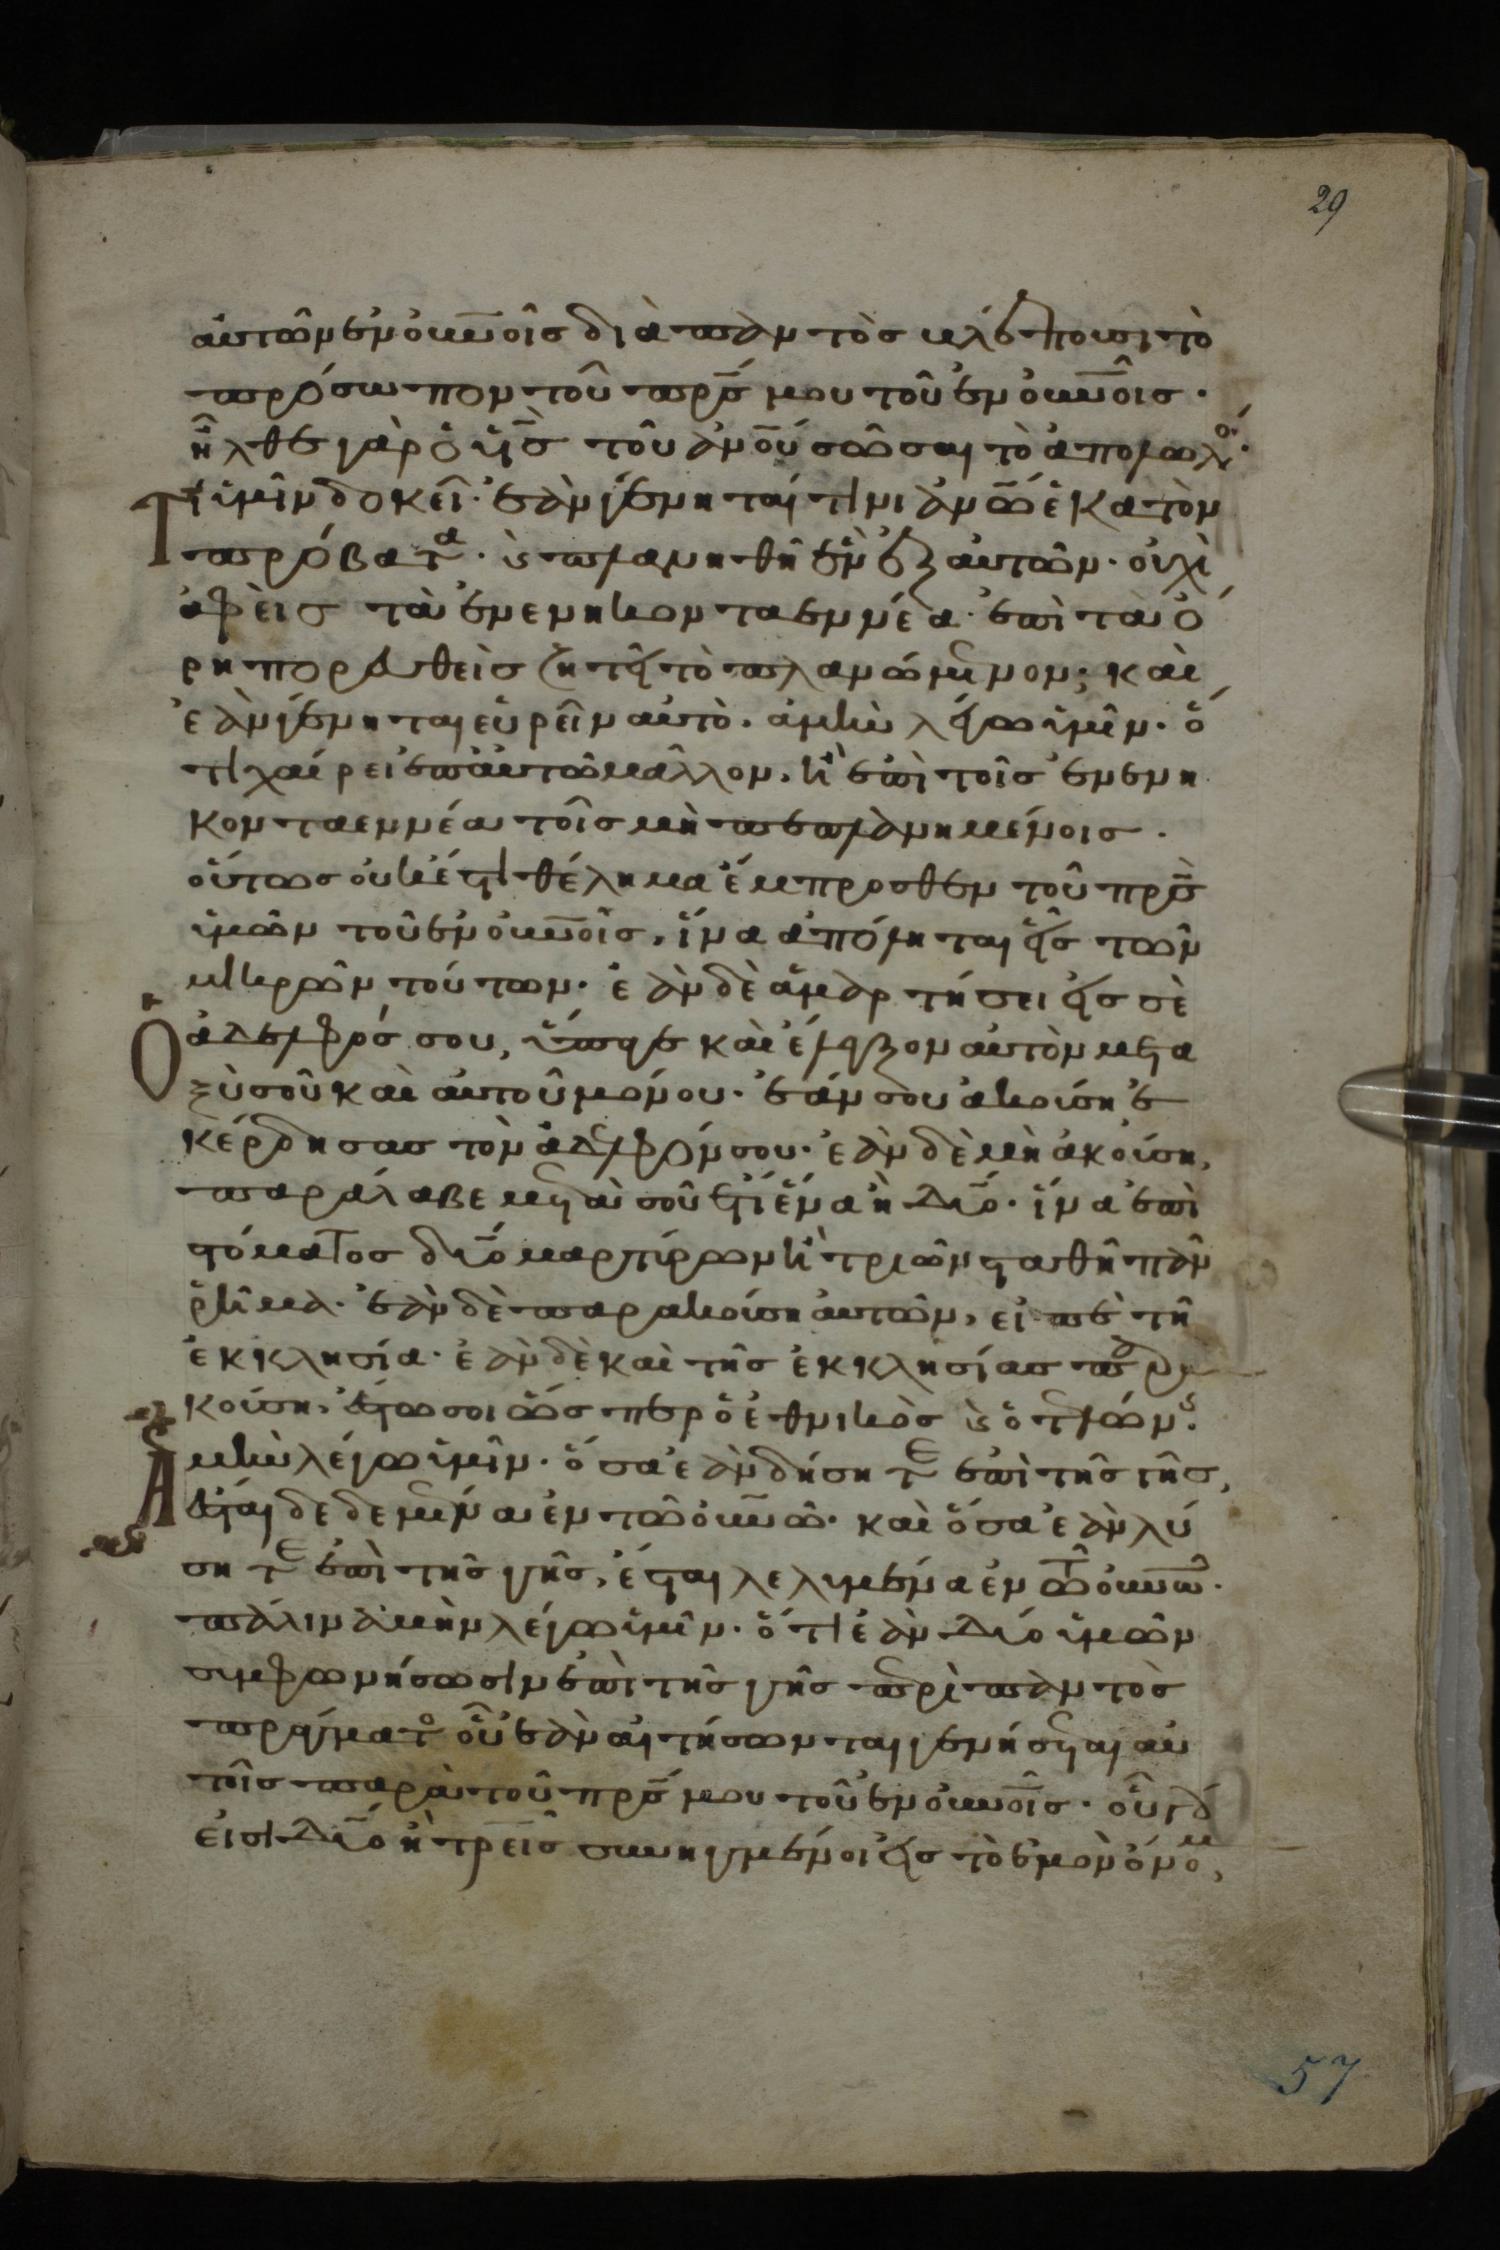 29
αὐτῶν ἐν οὐνοῖς διὰ παντὸς βλέπουσι τὸ
πρόσωπον τοῦ πρς μου τοῦ ἐν οὐνοῖς.
ἦλθε γὰρ ὁ υς τοῦ ανου σῶσαι τὸ ἀπολωλός.
Τί ὑμῖν δοκεῖ. ἐὰν γένηται τινι ανω ἑκατὸν
πρόβατα. καὶ πλανηθῆ ἓν ἐξ αὐτῶν. οὐχὶ
ἀφεὶς τὰ ἐνενηκονταεννέα ἐπὶ τὰ ὄ
ρη πορευθεὶς ζητεῖ τὸ πλανώμενον; καὶ
ἐὰν γένηται εὑρεῖν αὐτὸ. ἀμὴν λέγω ὑμῖν. ὅ
τι χαίρει ἐπ' αὐτῶ μᾶλλον, ἢ ἐπὶ τοῖς ἐνενη
κονταεννέα τοῖς μὴ πεπλανημένοις.
οὕτως οὐκ ἔστι θέλημα ἔμπροσθεν τοῦ πρς
ὑμῶν τοῦ ἐν οὐνοῖς, ἵνα ἀπόληται εἷς τῶν
μικρῶν τούτων. ἐὰν δὲ ἁμαρτήσει εἰς σὲ
Ὁ ἀδελφός σου, ὕπαγε καὶ ἔλεγξον αὐτὸν μετα
ξὺ σοῦ καὶ αὐτοῦ μόνου. ἐάν σου ἀκούση ἐ
κέρδησας τὸν ἀδελφόν σου. ἐὰν δὲ μὴ ἀκούση,
παράλαβε μετὰ σοῦ ἔτι ἕνα ἢ δύο. ἵνα ἐπὶ
στόματος δύο μαρτύρων ἢ τριῶν σταθῆ πᾶν
ῥῆμα. ἐὰν δὲ παρακούση αὐτῶν, εἰπὲ τῆ
ἐκκλησία. ἐὰν δὲ καὶ τῆς ἐκκλησίας παρα
κούση, ἔστω σοι ὥσπερ ὁ ἐθνικὸς καὶ ὁ τελώνης.
Ἀμὴν λέγω ὑμῖν. ὅσα ἐὰν δήσητε ἐπὶ τῆς γῆς,
ἔσται δεδεμένα ἐν τῶ οὐνῶ. καὶ ὅσα ἐὰν λύ
σητε ἐπὶ τῆς γῆς, ἔσται λελυμένα ἐν τῶ οὐνῶ.
πάλιν ἀμὴν λέγω ὑμῖν. ὅτι ἐὰν δύο ὑμῶν
συμφωνήσωσιν ἐπὶ τῆς γῆς περὶ παντὸς
πράγματος οὗ ἐὰν αἰτήσωνται γενήσεται αὐ
τοῖς παρὰ τοῦ πρς μου τοῦ ἐν οὐνοῖς. οὗ γάρ
εἰσι δύο ἢ τρεῖς συνηγμένοι εἰς τὸ ἐμὸν ὄνομα,
57